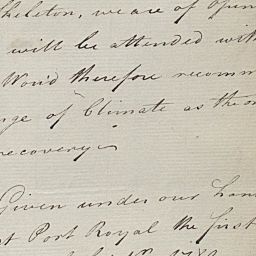 skeleton, we are of opin
will be attended wit
Wou'd therefore recomm
nge of Climate as the on
recovery
Given under our han
at Port Royal the first